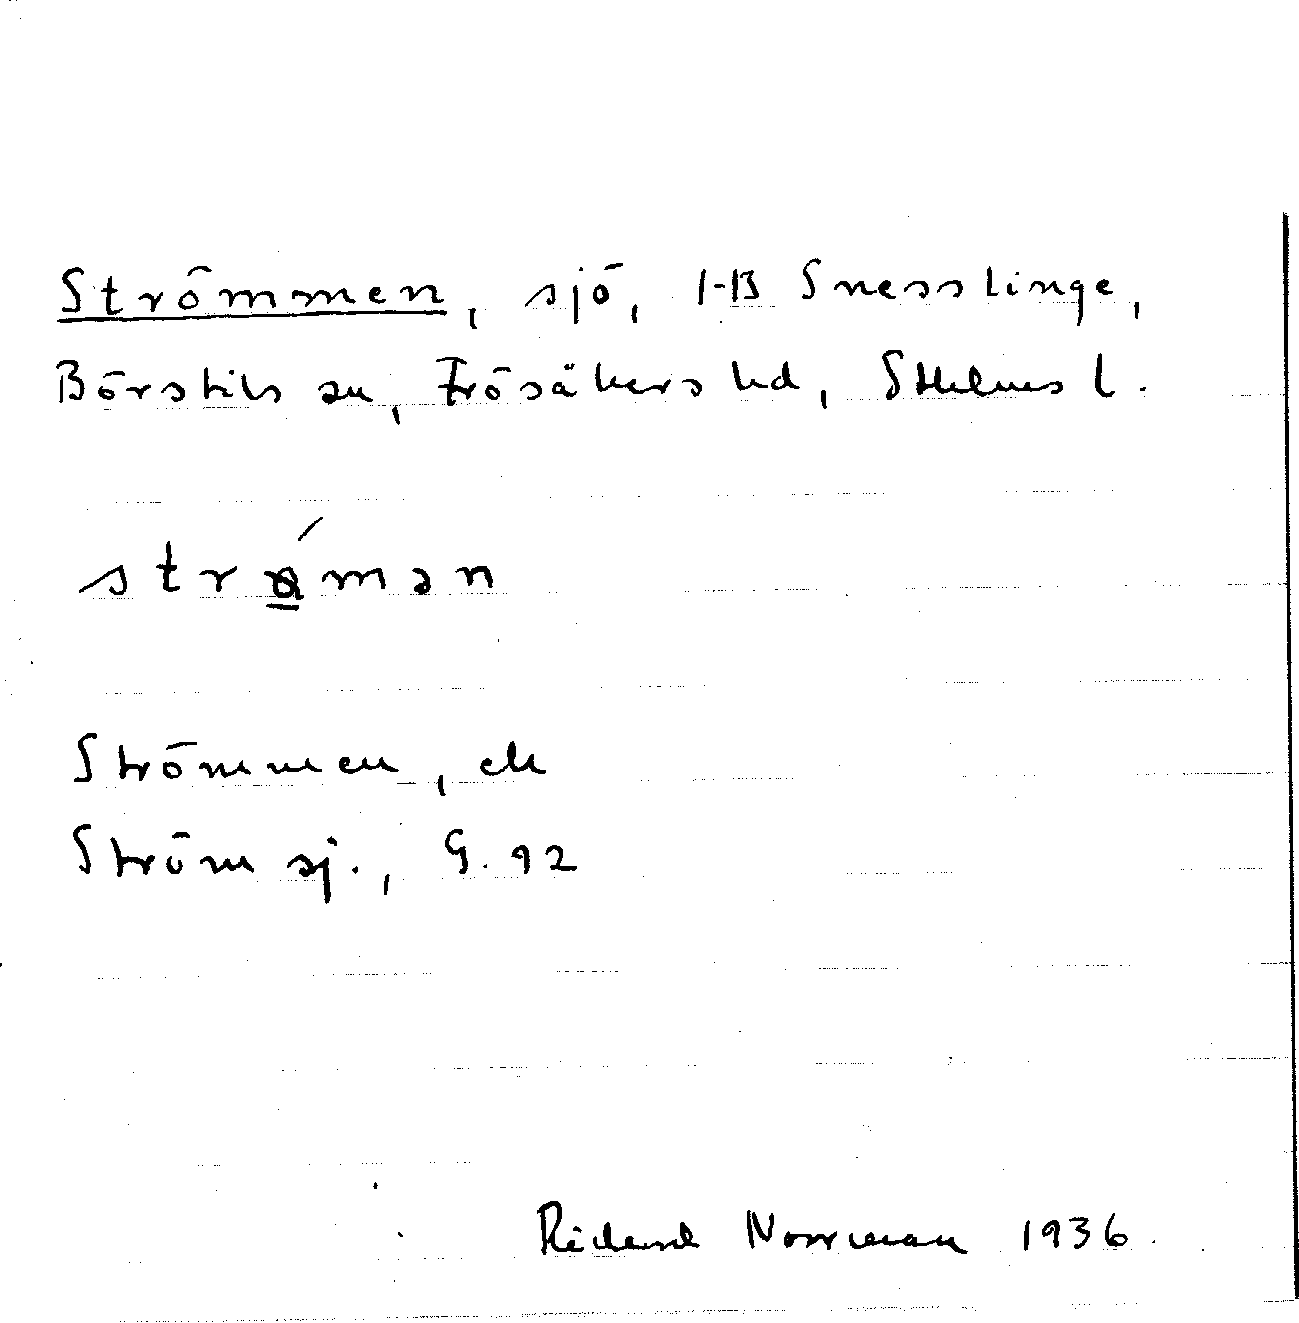 Strömmen, sjö, 1-13 Snesslinge,
Börstils sn, Frösåkers hd, Sthlms l.
strǿ̱mən
Strömmen, ek
Ström sj., G. 92
Richard Norrman 1936.